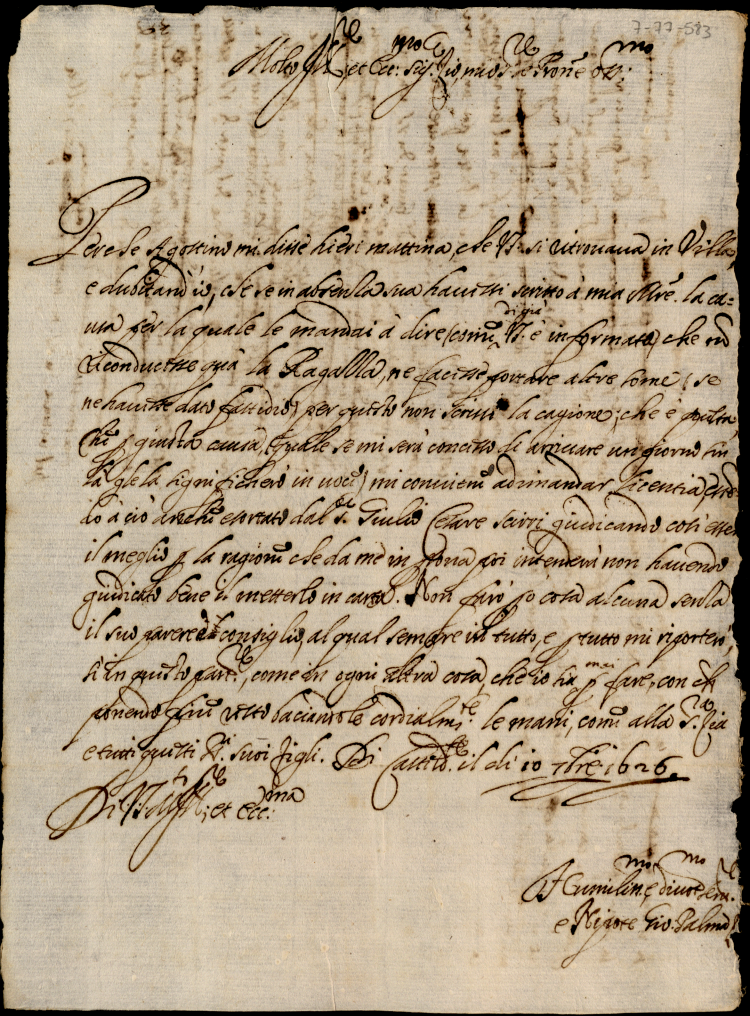 7-77-583
Molto Ill.re et Ecc.mo Sig. Zio, mio S.re Prone oss.mo
Perche Agostino mi disse hieri mattina, che V.S. si ritrovava in Villa,
e dubitand'io, che se in absenza sua havessi scritto à mia M.re la ca=
usa per la quale le mandai à dire (come V.S. di già è informata) che
riconducesse quà la Ragazza, ne facesse portare altre some (se
ne havesse dato fastidio) per questo non scrissi la cagione; che è
giusta causa, (quale se mi serà concesso di arrivare un giorno
gle la significherò in voce) mi conviene adimandar licentia,
do à ciò anche esortato dal S.r Giulio Cesare giudicando così esser
il meglio p la ragione che da me in poi intenderà non havendo
giudicato bene il metterlo in carta. Non farò io cosa alcuna senza
il suo parere, e consiglio, al qual sempre in tutto, e p tutto mi riporterò,
sì in questo part.re, come in ogni altra cosa, che io sia mai p fare, con che
ponendo fine resto baciandole cordialm.te le mani, come alla S.ra Zia
e tutti questi SS.ri suoi figli. Di il di 10 7bre 1626.
Di V.S. molt'Ill.re et Ecc.ma
Humiliss.mo e divotiss.mo ser.re
e Nipote Gio.